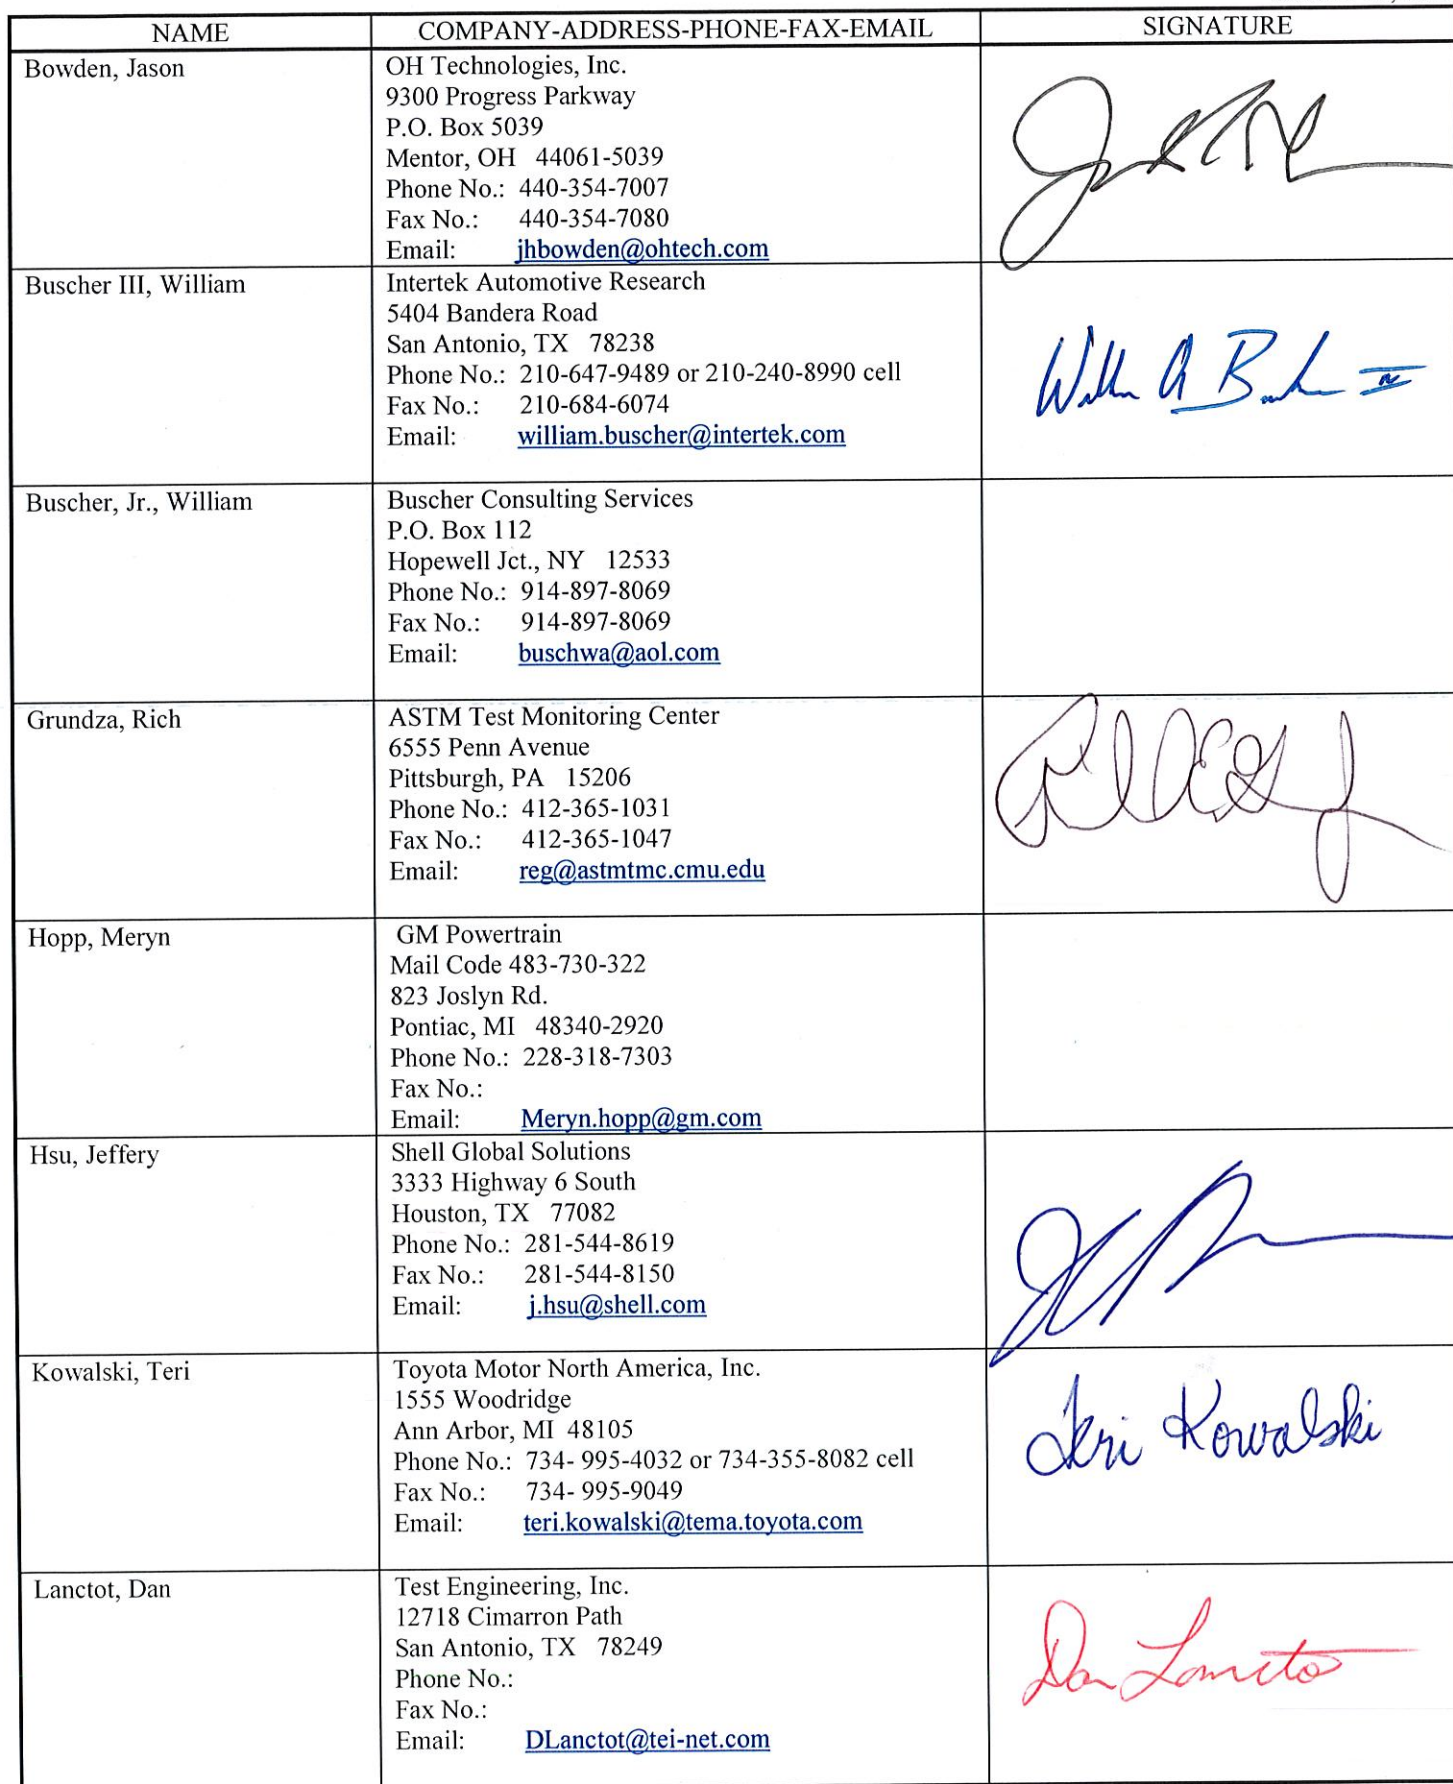 NAME COMPANY-ADDRESS-PHONE-FAX-EMAIL SIGNATURE
Bowden, Jason
OH Technologies, Inc.
9300 Progress Parkway
P.O. Box 5039
Mentor, OH 44061-5039
Phone No.: 440-354-7007
Fax No.: 440-354-7080
Email: jhbowden@ohtech.com
Buscher III, William
Intertek Automotive Research
5404 Bandera Road
San Antonio, TX 78238
Phone No.: 210-647-9489 or 210-240-8990 cell
Fax No.: 210-684-6074
Email: william.buscher@intertek.com
Buscher, Jr., William
Buscher Consulting Services
P.O. Box 112
Hopewell Jct., NY 12533
Phone No.: 914-897-8069
Fax No.: 914-897-8069
Email: buschwa@aol.com
Grundza, Rich
ASTM Test Monitoring Center
6555 Penn Avenue
Pittsburgh, PA 15206
Phone No.: 412-365-1031
Fax No.: 412-365-1047
Email: reg@astmtmc.cmu.edu
Hopp, Meryn
GM Powertrain
Mail Code 483-730-322
823 Joslyn Rd.
Pontiac, MI 48340-2920
Phone No.: 228-318-7303
Fax No.:
Email: Meryn.hopp@gm.com
Hsu, Jeffery
Shell Global Solutions
3333 Highway 6 South
Houston, TX 77082
Phone No.: 281-544-8619
Fax No.: 281-544-8150
Email: j.hsu@shell.com
Kowalski, Teri
Toyota Motor North America, Inc.
1555 Woodridge
Ann Arbor, MI 48105
Phone No.: 734- 995-4032 or 734-355-8082 cell
Fax No.: 734- 995-9049
Email: teri.kowalski@tema.toyota.com
Teri Kowalski
Lanctot, Dan
Test Engineering, Inc.
12718 Cimarron Path
San Antonio, TX 78249
Phone No.:
Fax No.:
Email: DLanctot@tei-net.com
Dan Lanctot